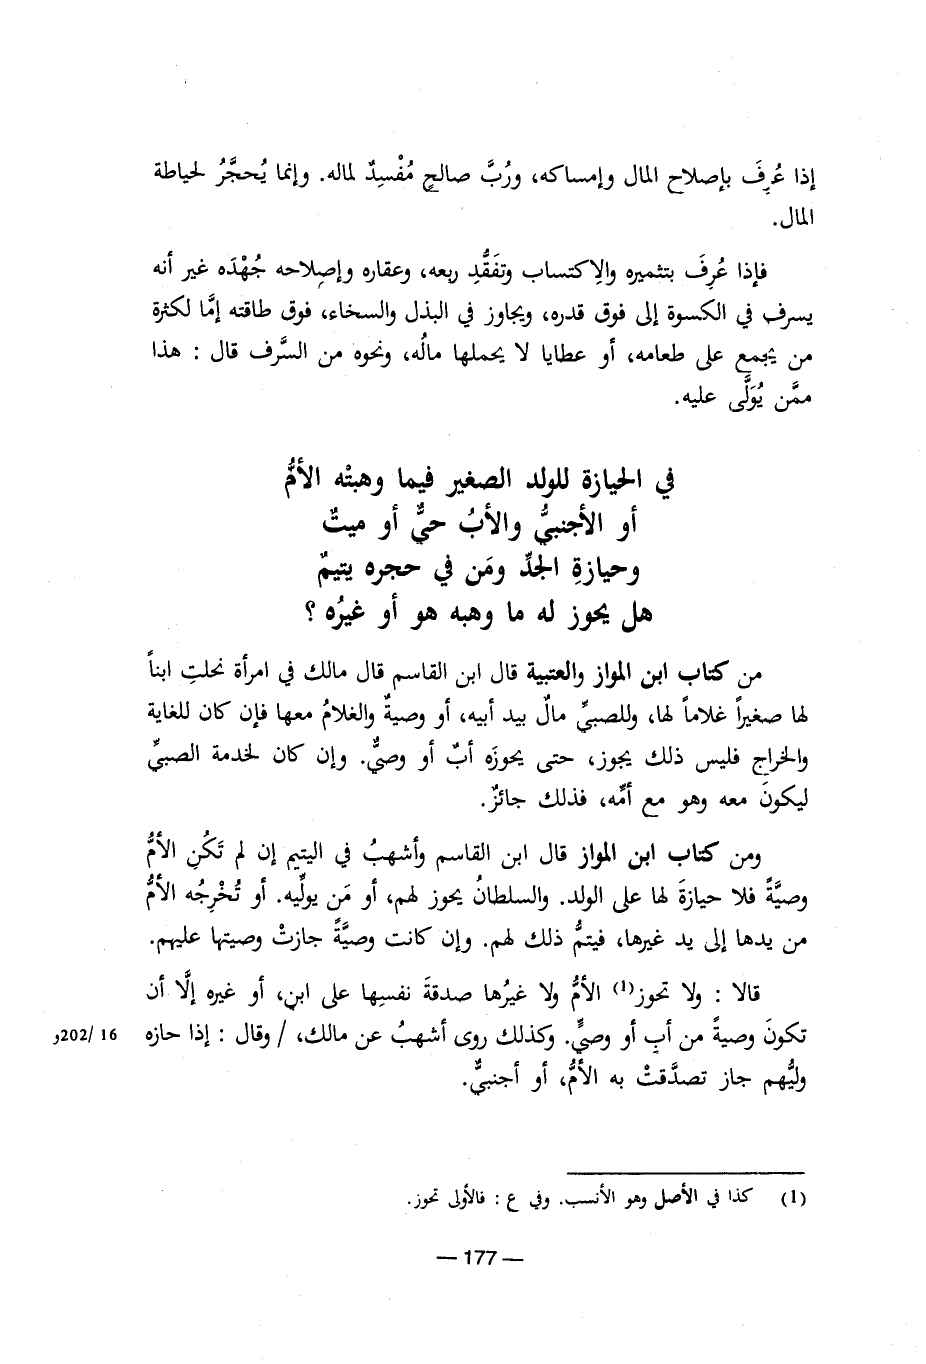 إذا عُرِفَ بإصلاح المال وإمساكه، ورُبَّ صالحٍ مُفْسِدٌ لماله. وإنما يُحجَّرُ لحياطة
المال.
فإذا عُرِفَ بتثميره والاِكتساب وتفَقُّدِ ربعه، وعقاره وإصلاحه جُهْدَه غير أنه
يسرف في الكسوة إلى فوق قدره، ويجاوز في البذل والسخاء، فوق طاقته إمَّا لكثرة
من يجمع على طعامه، أو عطايا لا يحملها مالُه، ونحوه من السَّرف قال : هذا
ممَّن يُوَلَّى عليه.
في الحيازة للولد الصغير فيما وهبتْه الأمُّ
أو الأجنبيُّ والأبُ حيٌّ أو ميتٌ
وحيازةِ الجدِّ ومَن في حجره يتيمٌ
هل يحوز له ما وهبه هو أو غيرُه ؟
من كتاب ابن المواز والعتبية قال ابن القاسم قال مالك في امرأة نحلتِ ابناً
لها صغيراً غلاماً لها، وللصبيِّ مالٌ بيد أبيه، أو وصيةٌ والغلامُ معها فإن كان للغاية
والخراج فليس ذلك يجوز، حتى يحوزَه أبٌ أو وصيٌّ. وإن كان لخدمة الصبيِّ
ليكونَ معه وهو مع أمِّه، فذلك جائزٌ.
ومن كتاب ابن المواز قال ابن القاسم وأشهبُ في اليتيم إن لم تَكُنِ الأمُّ
وصيَّةً فلا حيازةَ لها على الولد. والسلطانُ يحوز لهم، أو مَن يولِّيه. أو تُخْرِجُه الأمُّ
من يدها إلى يد غيرها، فيتمُّ ذلك لهم. وإن كانت وصيَّةً جازتْ وصيتها عليهم.
قالا : ولا تحوز(1) الأمُّ ولا غيرُها صدقةَ نفسِها على ابنٍ، أو غيره إلَّا أن
تكونَ وصيةً من أبٍ أو وصيٍّ. وكذلك روى أشهبُ عن مالك، / وقال : إذا حازه 16 /202و
وليُّهم جاز تصدَّقتْ به الأمُّ، أو أجنبيٌّ.
(1) كذا في الأصل وهو الأنسب. وفي ع : فالأولى تحوز.
— 177 —